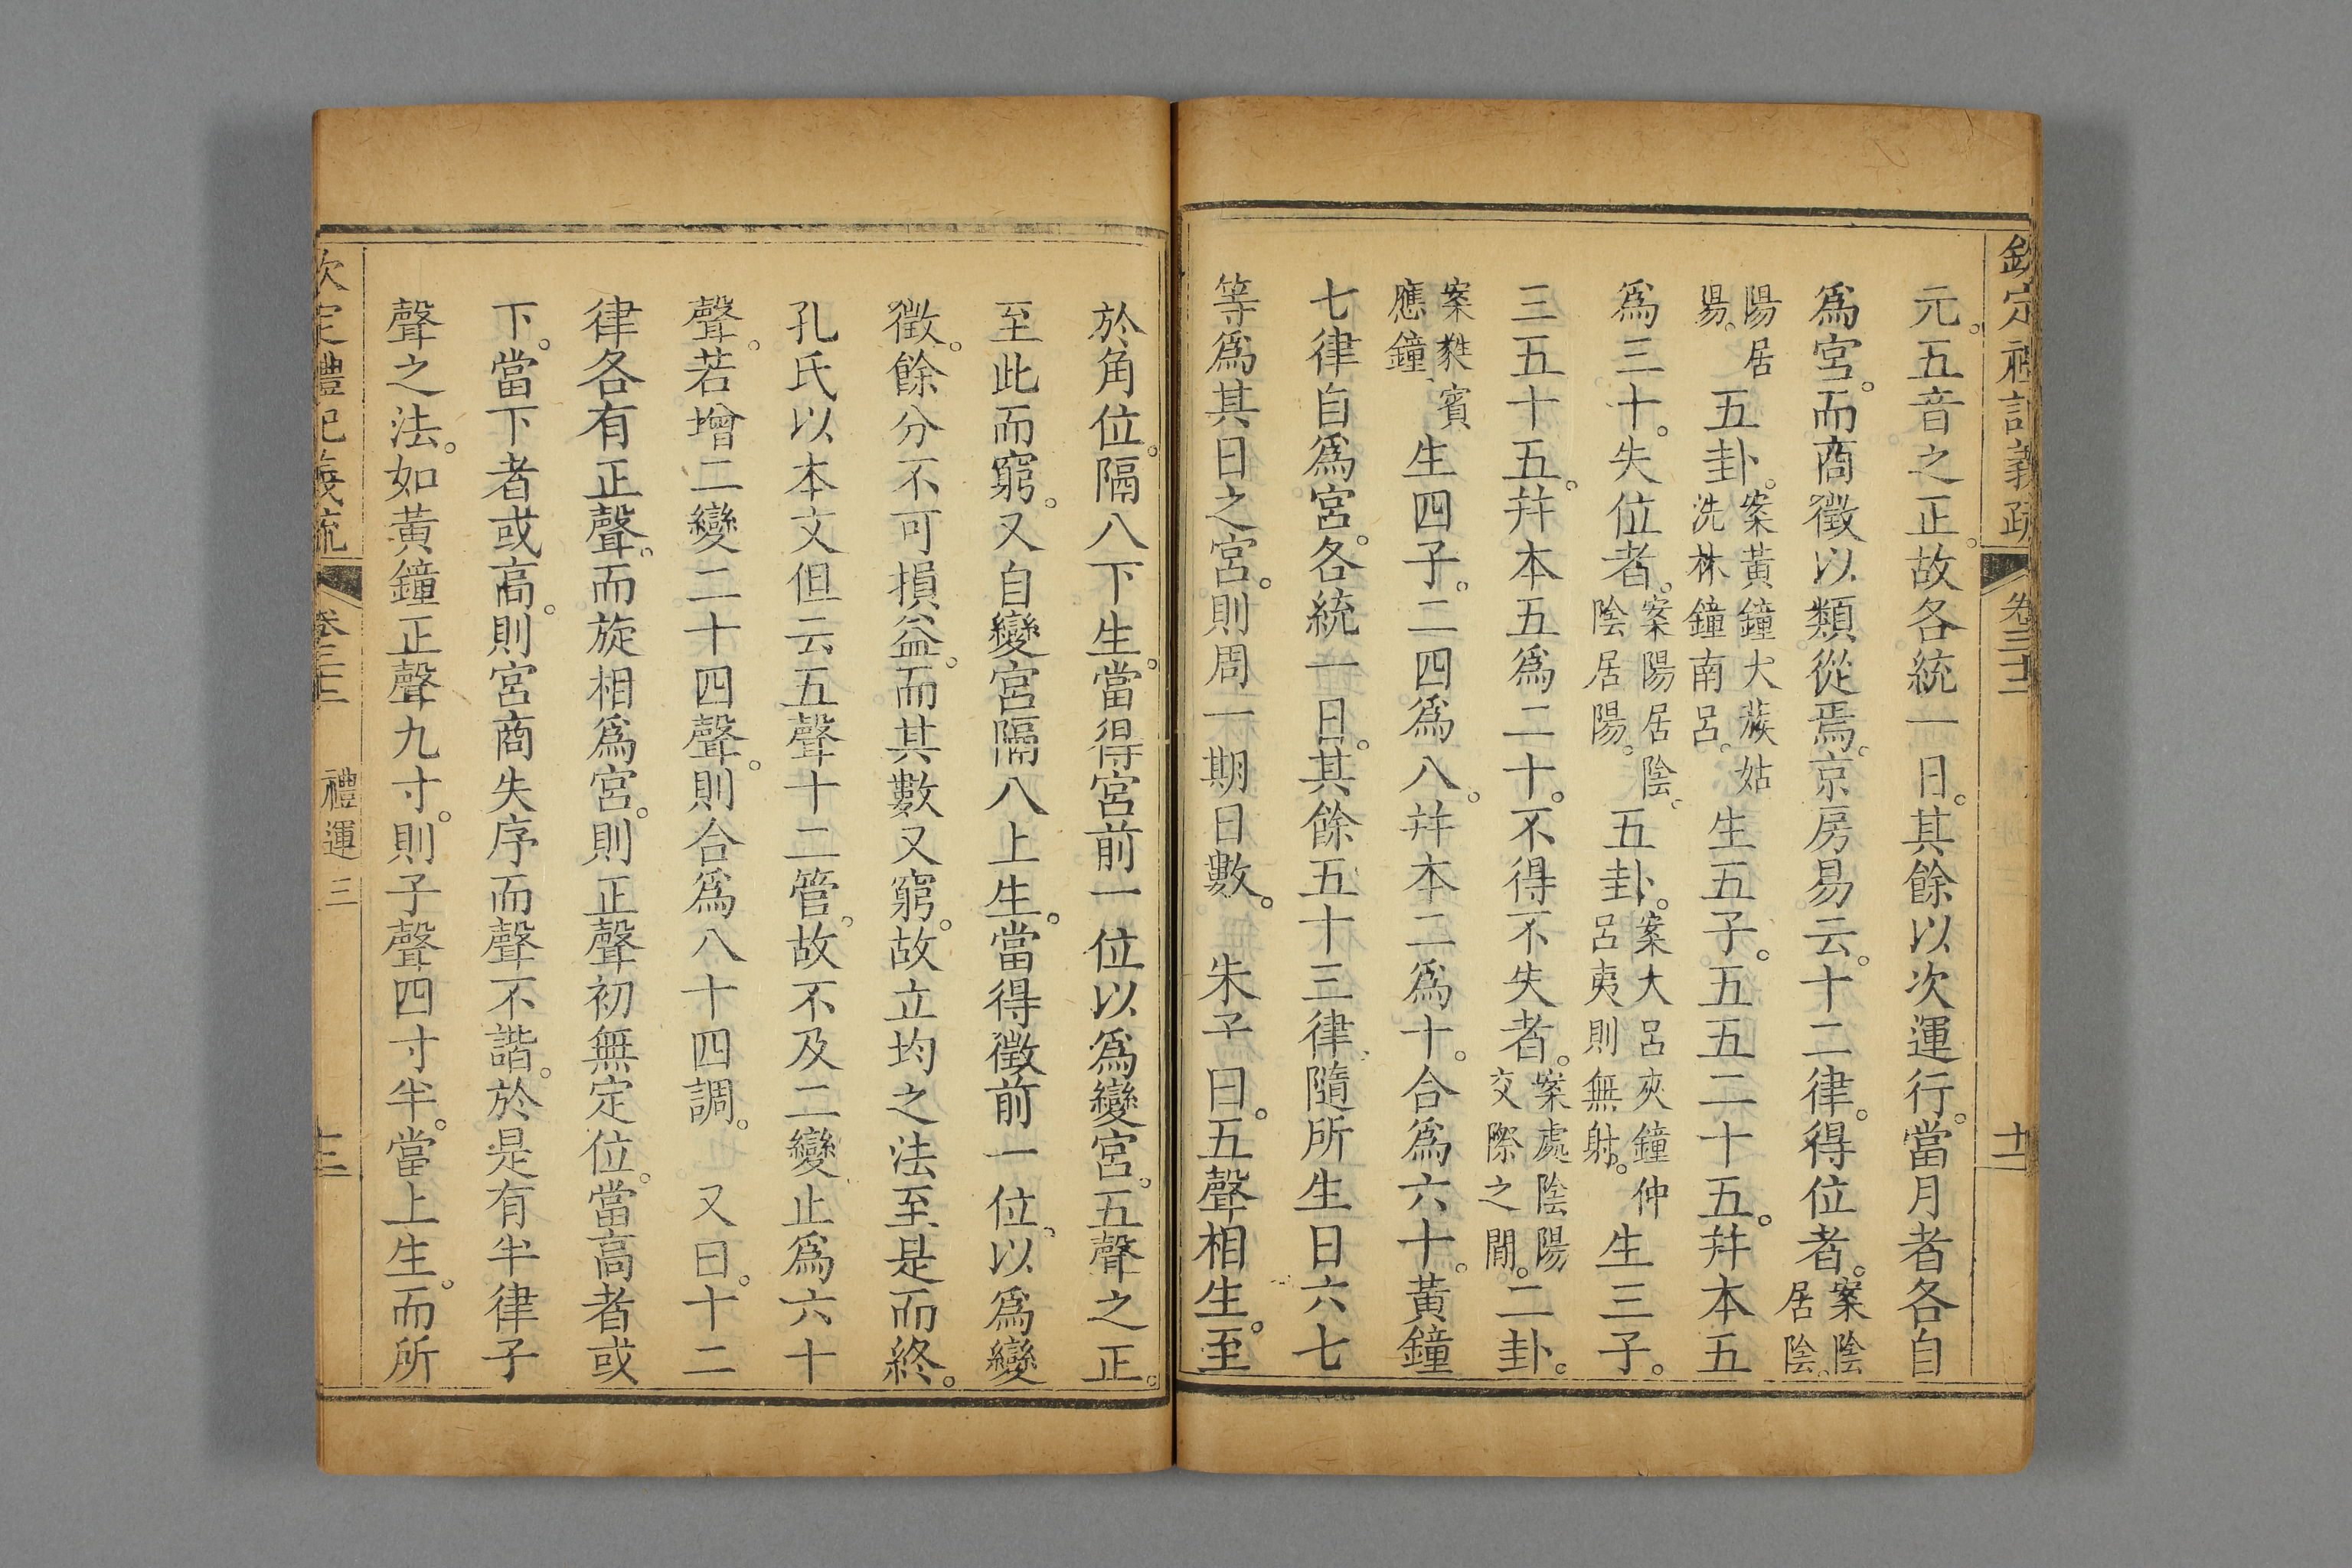 欽定禮記義疏 卷三十二 十二
元。五音之正。故各統一日。其餘以次運行。當月者各自
爲宮。而商徵以類從焉。京房易云。十二律。得位者。案陰居陰。
陽居陽。五卦。案黃鐘大蔟姑洗林鐘南呂。生五子。五五二十五。幷本五
爲三十。失位者。案陽居陰。陰居陽。五卦。案大呂夾鐘仲呂夷則無射。生三子。
三五十五。幷本五爲二十。不得不失者。案處陰陽交際之閒。二卦。
案蕤賓應鐘生四子。二四爲八。幷本二爲十。合爲六十。黃鐘
七律自爲宮。各統一日。其餘五十三律。隨所生日六七
等爲其日之宮。則周一期日數。 朱子曰。五聲相生。至
於角位。隔八下生。當得宮前一位以爲變宮。五聲之正。
至此而窮。又自變宮隔八上生。當得徵前一位。以爲變
徵。餘分不可損益。而其數又窮。故立均之法至是而終。
孔氏以本文但云五聲十二管。故不及二變止爲六十
聲。若增二變二十四聲。則合爲八十四調。 又曰。十二
律各有正聲。而旋相爲宮。則正聲初無定位。當高者或
下。當下者或高。則宮商失序而聲不諧。於是有半律子
聲之法。如黃鐘正聲九寸。則子聲四寸半。當上生。而所
欽定禮記義疏 卷三十二 禮運三 十三